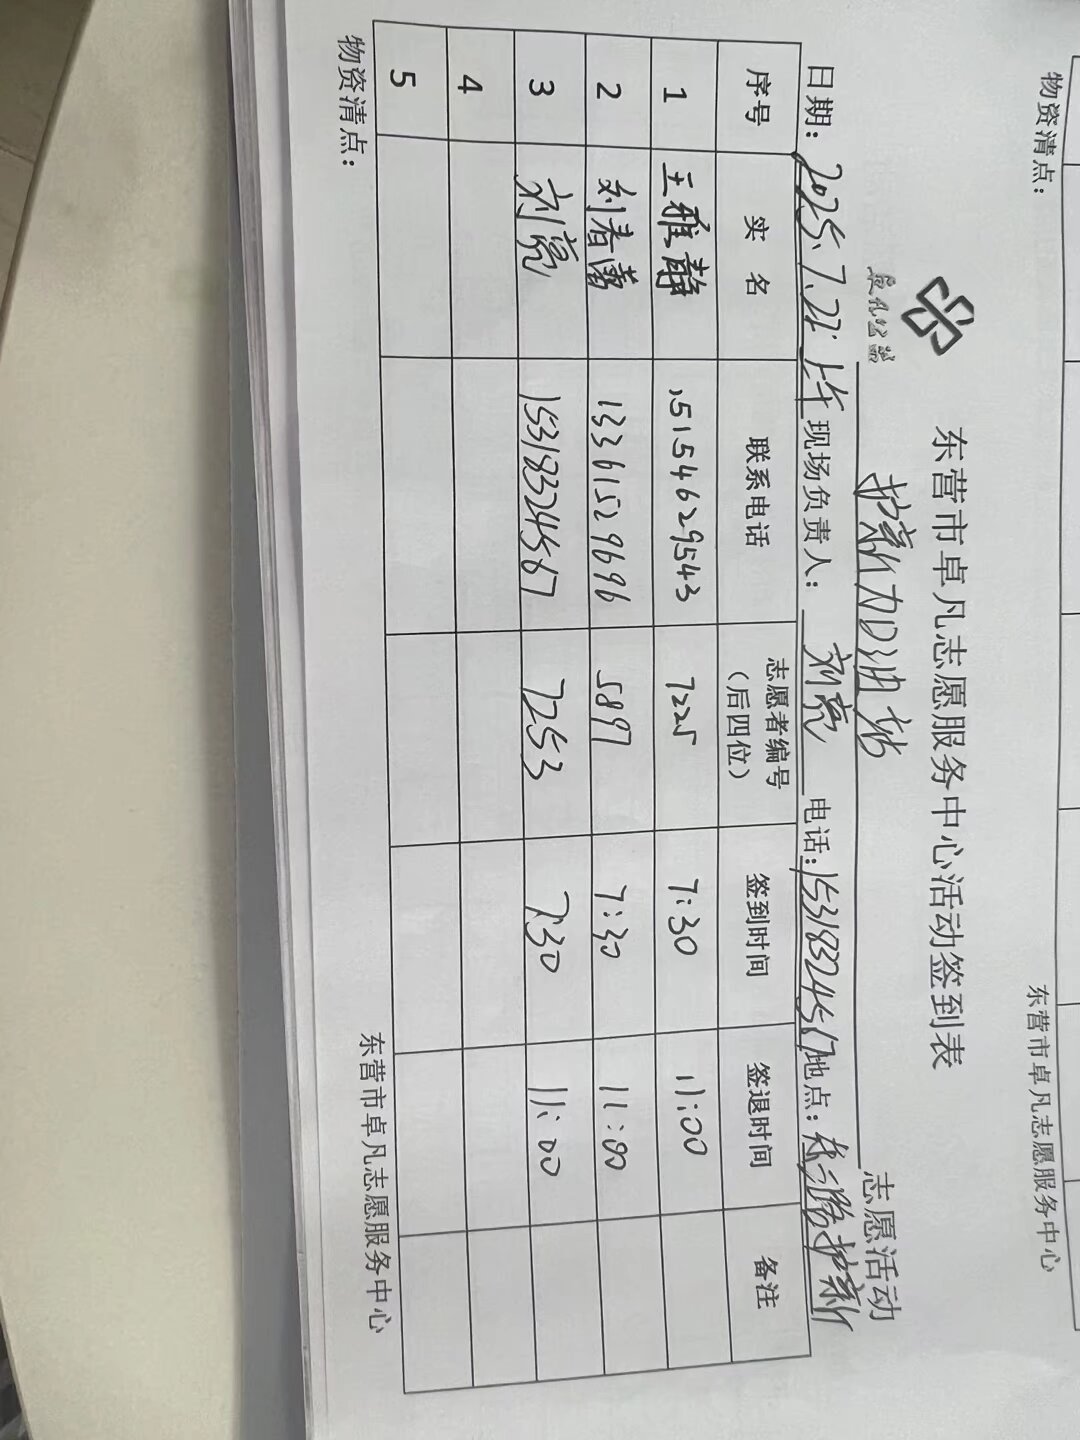 东营市卓凡志愿服务中心活动签到表
护新加油站 志愿活动
日期：2025.7.22.上午 现场负责人：刘亮 电话：15318324567 地点：护新
序号 实名 联系电话 志愿者编号（后四位） 签到时间 签退时间 备注
1 王雅静 15154629543 7225 7:30 11:00
2 刘春蕾 13361529696 5897 7:30 11:00
3 刘亮 15318324567 7253 7:30 11:00
4
5
物资清点： 东营市卓凡志愿服务中心
物资清点： 东营市卓凡志愿服务中心